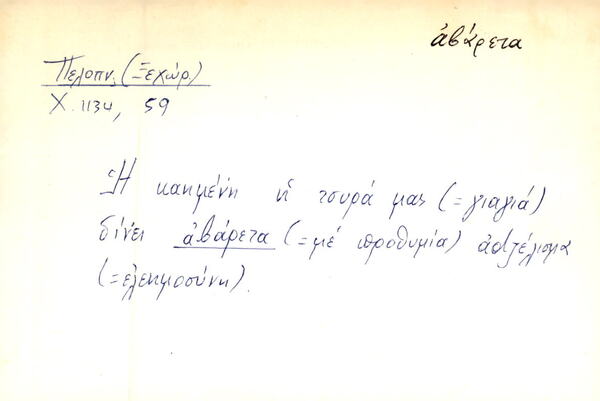 ἀβάρετα
Πελοπν. (Ξεχώρ)
Χ. 1134, 59
Ἡ καημένη ἡ τσυρά μας (=γιαγιά)
δίνει ἀβάρετα (=μέ προθυμία)
(=ἐλεημοσύνη).